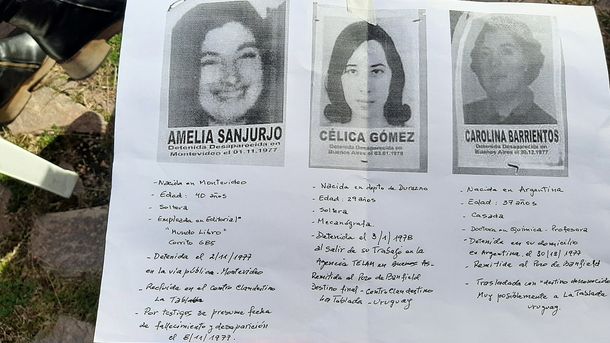 AMELIA SANJURJO
Detenida Desaparecida en
Montevideo el 01.11.1977
- Nacida en Montevideo
- Edad: 40 años
- Soltera
- Empleada en Editorial
"Mundo Libro"
Cerrito 685
- Detenida el 2/11/1977
en la vía pública - Montevideo
- Recluida en el Centro Clandestino
La Tablada
- Por testigos se presume fecha
de fallecimiento y desaparición
el 8/11/1977.
CÉLICA GÓMEZ
Detenida Desaparecida en
Buenos Aires el 03.01.1978
- Nacida en depto de Durazno
- Edad: 29 años
- Soltera
- Mecanógrafa
- Detenida el 3/1/1978
al salir de su Trabajo en la
Agencia TELAM en Buenos As.
Remitida al Pozo de Banfield
Destino final - Centro Clandestino
La Tablada - Uruguay
CAROLINA BARRIENTOS
Detenida Desaparecida en
Buenos Aires el 30.12.1977
- Nacida en Argentina
- Edad: 37 años
- Casada
- Doctora en Química - Profesora
- Detenida en su domicilio
en Argentina, el 30/12/1977
- Remitida al Pozo de Banfield
- Trasladada con "destino desconocido"
Muy posiblemente a La Tablada
Uruguay.